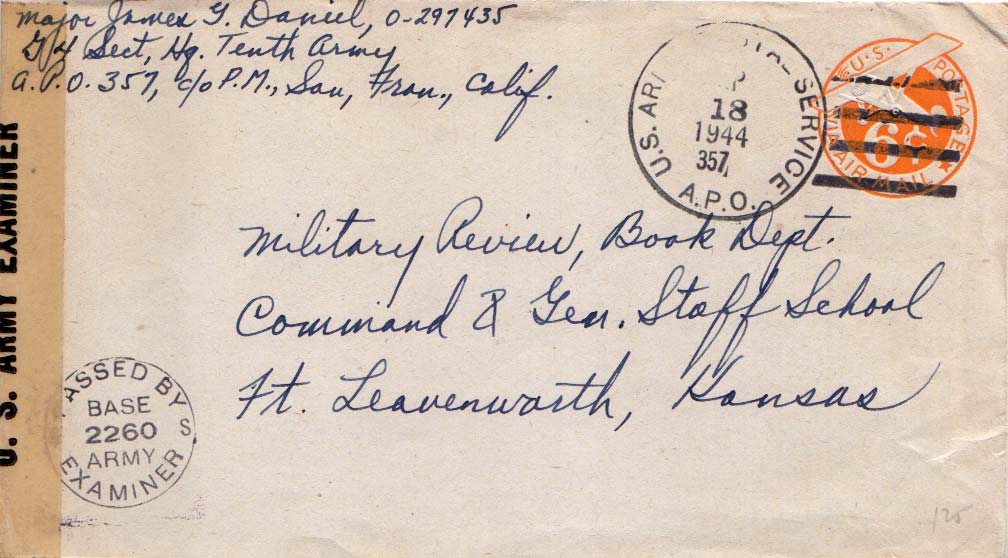 Major James G. Daniel, O-297435
G4 Sect, Hq. Tenth Army
A.P.O. 357, c/o P.M., San, Fran., Calif.
U.S. ARMY EXAMINER
SERVICE
18
1944
357
U.S. AR
A.P.O.
U.S. POSTAGE
6¢
VIA AIR MAIL
Military Review, Book Dept.
Command & Gen. Staff School
Ft. Leavenworth, Kansas
PASSED BY
BASE
2260
ARMY
EXAMINER S
125